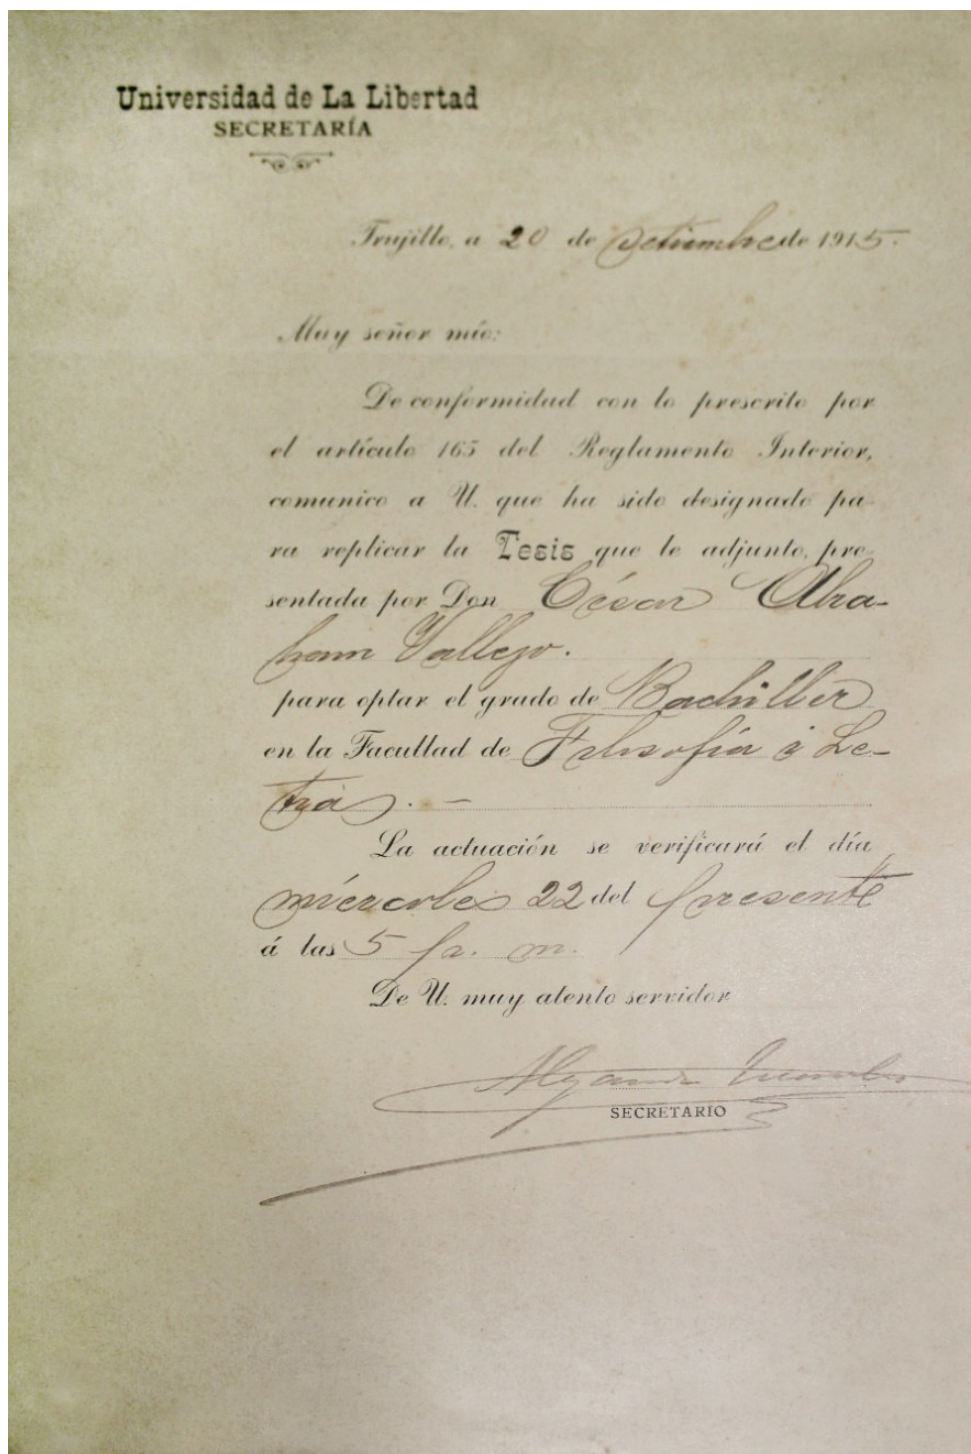 Universidad de La Libertad
SECRETARÍA
Trujillo, a 20 de Setiembre de 1915.
Muy señor mío:
De conformidad con lo prescrito por
el artículo 165 del Reglamento Interior,
comunico a U. que ha sido designado pa-
ra replicar la Tesis que le adjunto, pre-
sentada por Don César Abra-
ham Vallejo.
para optar el grado de Bachiller
en la Facultad de Filosofía i Le-
tras. —
La actuación se verificará el día
miércoles 22 del presente
á las 5 p. m.
De U. muy atento servidor
SECRETARIO